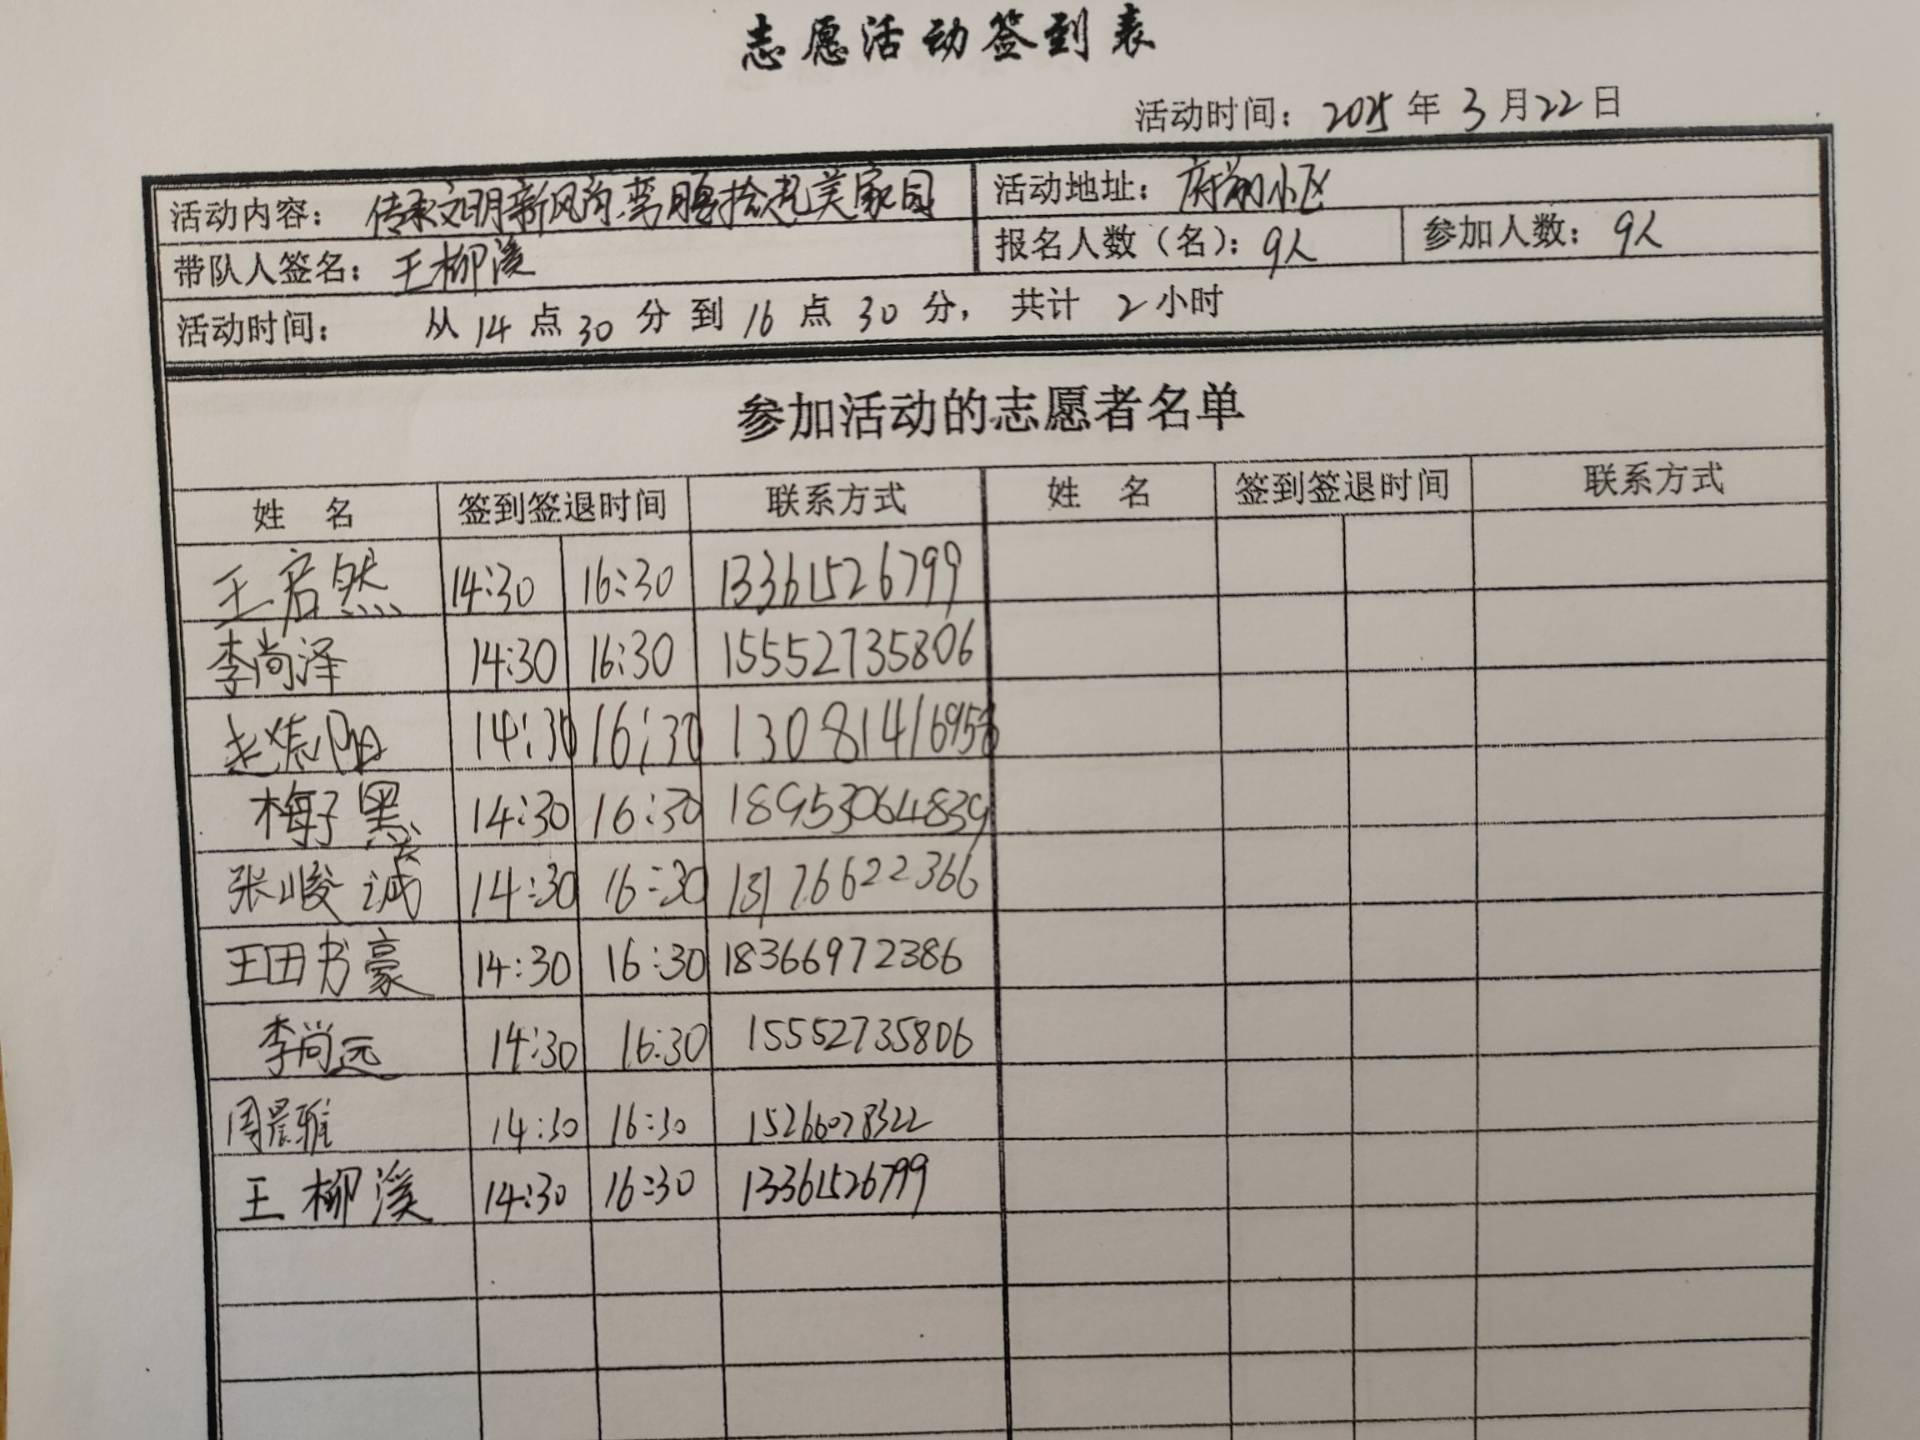 志愿活动签到表
活动时间：2025年3月22日
活动内容：传承文明新风尚弯腰拾起美家园 活动地址：府翔小区
带队人签名：王柳溪 报名人数（名）：9人 参加人数：9人
活动时间：从14点30分到16点30分，共计2小时
参加活动的志愿者名单
姓 名 签到签退时间 联系方式 姓 名 签到签退时间 联系方式
王若然 14:30 16:30 13361526799
李尚泽 14:30 16:30 15552735806
赵 阳 14:30 16:30 13081416958
梅子 14:30 16:30 18953064839
张峻诚 14:30 16:30 13176622366
王田书豪 14:30 16:30 18366972386
李尚远 14:30 16:30 15552735806
周晨雅 14:30 16:30 15266078322
王柳溪 14:30 16:30 13361526799